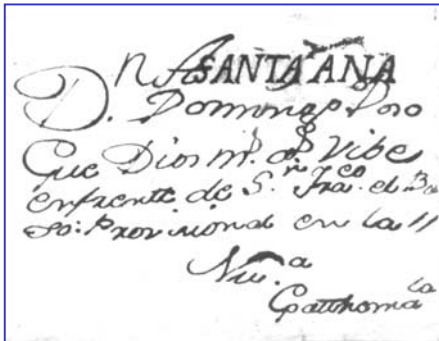 n A SANTA ANA
D. Domingo Poso
Que Dios m.^s a.^s Vibe
enfrente de S.^n Fra.^co el Ba
so: Provisional en la
Nu.^a
Goatthoma^la